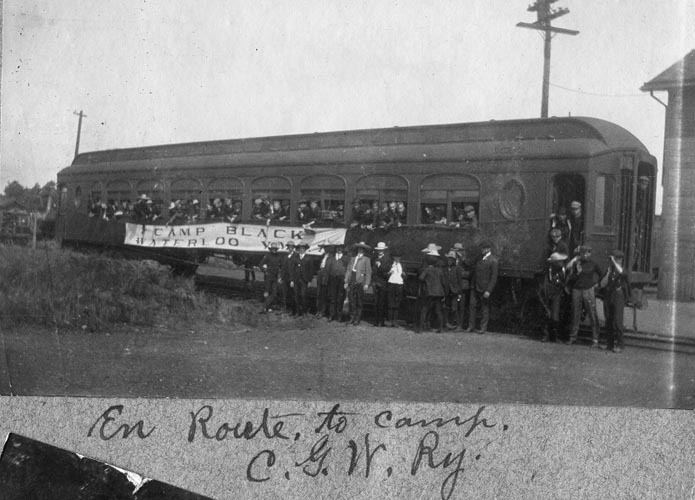 CAMP BLACK
WATERLOO Y.M.
En Route, to camp.
C. G. W. Ry.